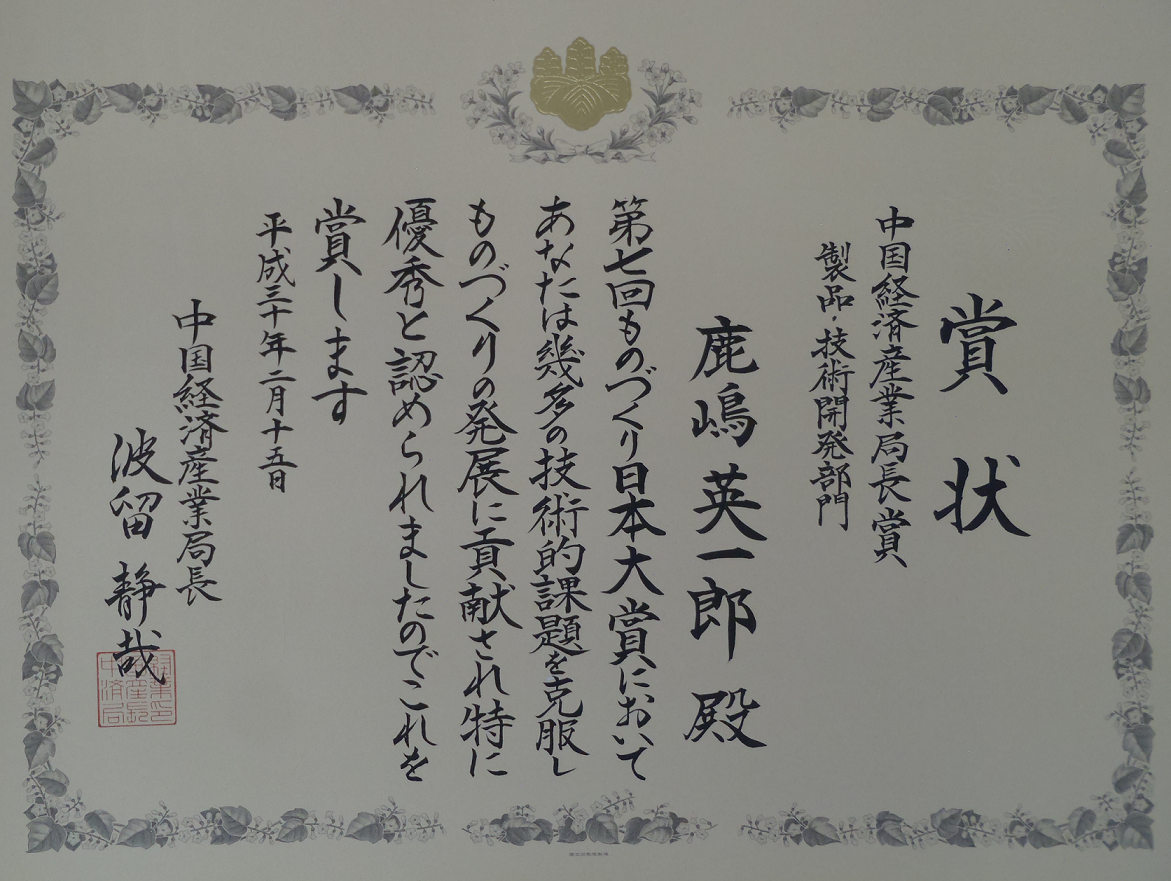 賞状
中国経済産業局長賞
製品・技術開発部門
鹿嶋英一郎 殿
第七回ものづくり日本大賞において
あなたは幾多の技術的課題を克服し
ものづくりの発展に貢献され特に
優秀と認められましたのでこれを
賞します
平成三十年二月十五日
中国経済産業局長
波留静哉